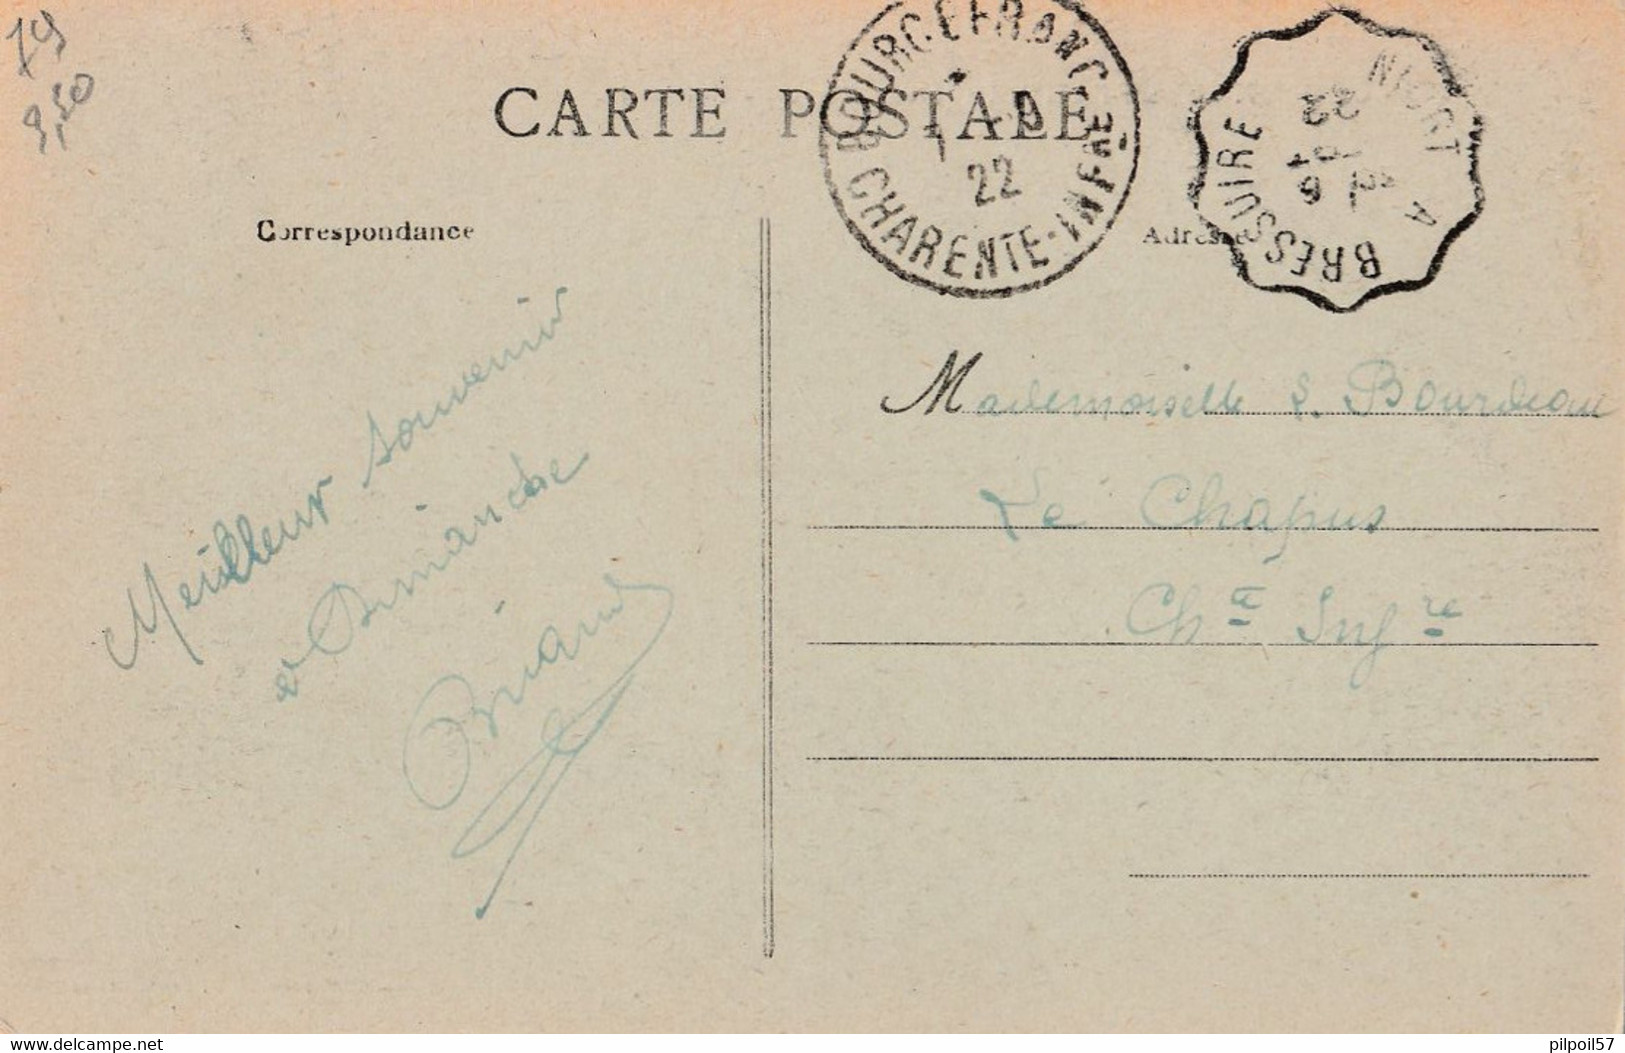 79
9,50
CARTE POSTALE
BOURCEFRANC
22
CHARENTE-INFRE
NIORT A BRESSUIRE
22
Correspondance
Adresse
Meilleur souvenir
à Dimanche
Briand
Mademoiselle S. Bourdeau
Le Chapus
Chte Infre
www.delcampe.net
pilpoil57